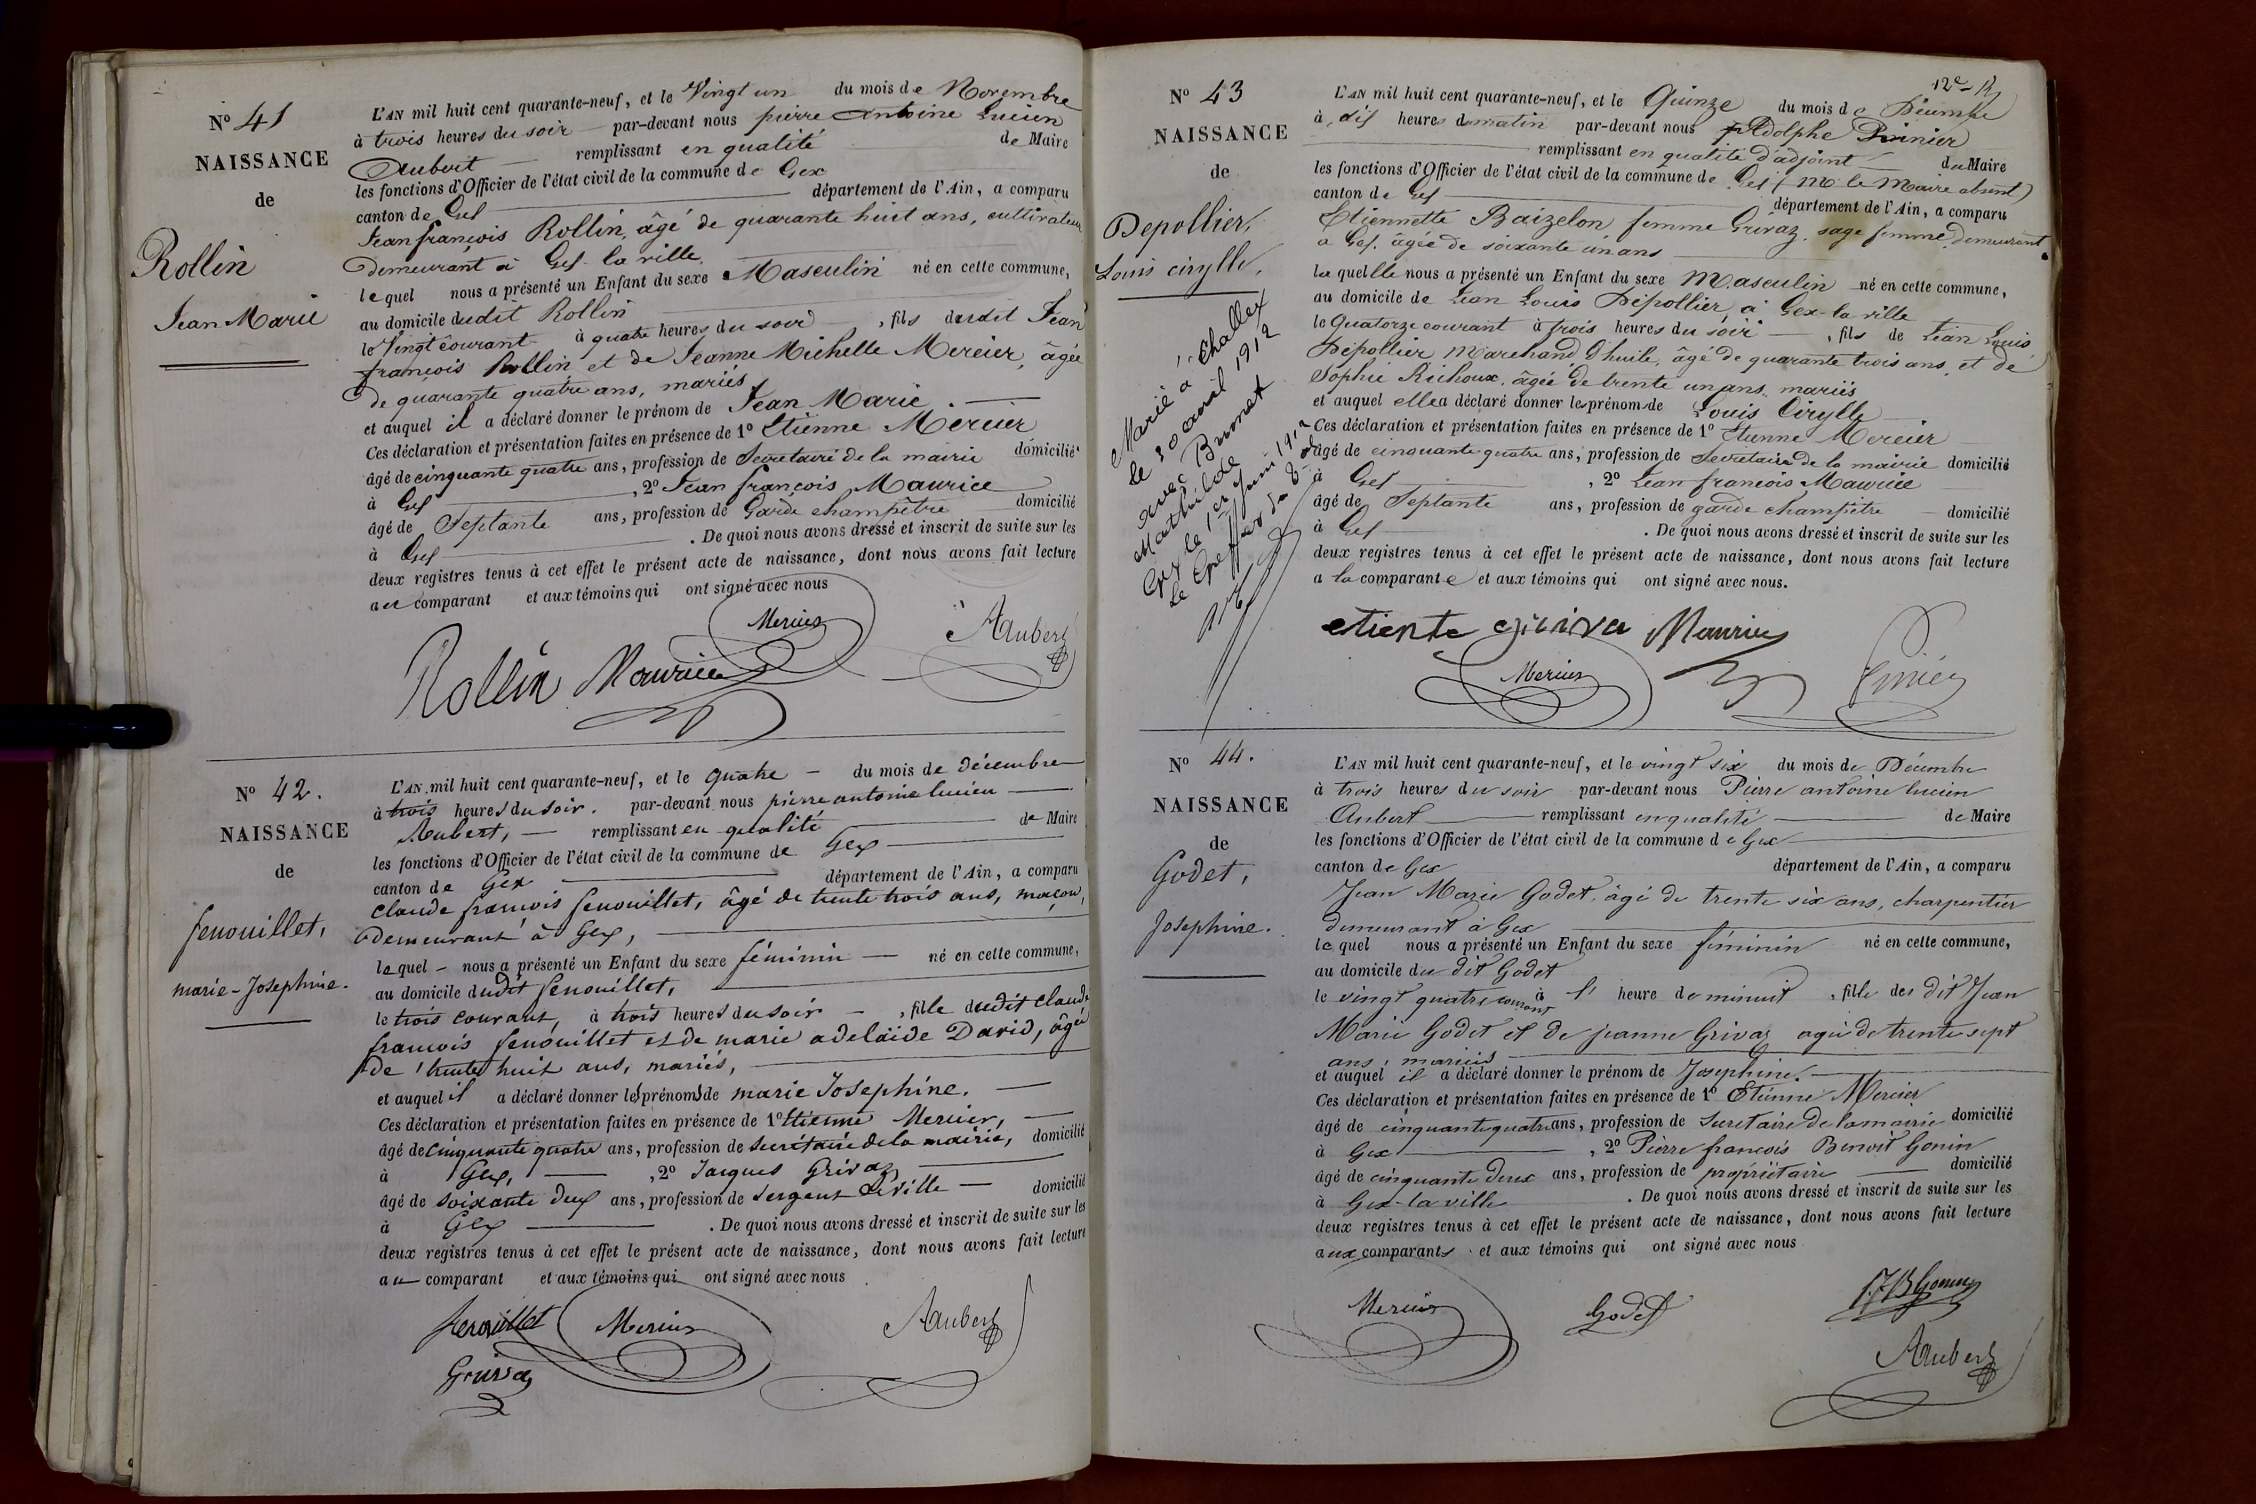 N° 41
NAISSANCE
de
Rollin
Jean Marie
L'AN mil huit cent quarante-neuf, et le Vingt un du mois de Novembre
à trois heures du soir par-devant nous pierre Antoine Lucien
Aubert remplissant en qualité de Maire
les fonctions d'Officier de l'état civil de la commune de Gex
canton de Gex département de l'Ain, a comparu
Jean françois Rollin, âgé de quarante huit ans, cultivateur
demeurant à Gex la ville
lequel nous a présenté un Enfant du sexe Masculin né en cette commune,
au domicile dudit Rollin
le Vingt courant à quatre heures du soir, fils dudit Jean
françois Rollin et de Jeanne Michelle Mercier, âgée
de quarante quatre ans, mariés
et auquel il a déclaré donner le prénom de Jean Marie.
Ces déclaration et présentation faites en présence de 1° Etienne Mercier
âgé de cinquante quatre ans, profession de Secretaire de la mairie domicilié
à Gex, 2° Jean françois Maurice
âgé de Septante ans, profession de Garde champêtre domicilié
à Gex. De quoi nous avons dressé et inscrit de suite sur les
deux registres tenus à cet effet le présent acte de naissance, dont nous avons fait lecture
au comparant et aux témoins qui ont signé avec nous
Mercier
Aubert
Rollin Maurice
N° 42.
NAISSANCE
de
fenouillet,
marie-Josephine.
L'AN mil huit cent quarante-neuf, et le quatre du mois de décembre
à trois heures du soir. par-devant nous pierre antoine lucien
Aubert, remplissant en qualité de Maire
les fonctions d'Officier de l'état civil de la commune de Gex
canton de Gex département de l'Ain, a comparu
claude françois fenouillet, âgé de trente trois ans, maçon,
demeurant à Gex,
lequel nous a présenté un Enfant du sexe féminin né en cette commune,
au domicile dudit fenouillet,
le trois courant, à trois heures du soir, fille dudit claude
françois fenouillet et de marie adelaïde David, âgée
de trente huit ans, mariés,
et auquel il a déclaré donner les prénoms de marie Josephine.
Ces déclaration et présentation faites en présence de 1° Etienne Mercier,
âgé de cinquante quatre ans, profession de secrétaire de la mairie, domicilié
à Gex, 2° Jacques Grivaz
âgé de soixante deux ans, profession de sergent de ville domicilié
à Gex. De quoi nous avons dressé et inscrit de suite sur les
deux registres tenus à cet effet le présent acte de naissance, dont nous avons fait lecture
au comparant et aux témoins qui ont signé avec nous
fenouillet Mercier Aubert
Grivaz
N° 43
NAISSANCE
de
Depollier,
Louis cirylle,
Marié à Challex
le 20 avril 1912
avec Brunet
Mathilde
Gex le 1er Juin 1912
Le Greffier
L'AN mil huit cent quarante-neuf, et le Quinze du mois de Décembre
à dix heures du matin par-devant nous Adolphe
remplissant en qualité d'adjoint du Maire
les fonctions d'Officier de l'état civil de la commune de Gex (M. le Maire absent)
canton de Gex département de l'Ain, a comparu
Etiennette Baizelon, femme Grivaz, sage femme, demeurant
a Gex, âgée de soixante un ans
laquelle nous a présenté un Enfant du sexe Masculin né en cette commune,
au domicile de Jean Louis Dépollier, à Gex-la-ville
le Quatorze courant à trois heures du soir, fils de Jean Louis
Dépollier, Marchand d'huile, âgé de quarante trois ans, et de
Sophie Richoux, âgée de trente un ans, mariés
et auquel elle a déclaré donner les prénoms de Louis Cirylle
Ces déclaration et présentation faites en présence de 1° Etienne Mercier
âgé de cinquante quatre ans, profession de Secretaire de la mairie domicilié
à Gex, 2° Jean françois Maurice
âgé de Septante ans, profession de garde champêtre domicilié
à Gex. De quoi nous avons dressé et inscrit de suite sur les
deux registres tenus à cet effet le présent acte de naissance, dont nous avons fait lecture
a la comparante et aux témoins qui ont signé avec nous.
Maurice
Mercier
N° 44.
NAISSANCE
de
Godet,
Josephine.
L'AN mil huit cent quarante-neuf, et le vingt six du mois de Décembre
à trois heures du soir par-devant nous Pierre antoine lucien
Aubert remplissant en qualité de Maire
les fonctions d'Officier de l'état civil de la commune de Gex
canton de Gex département de l'Ain, a comparu
Jean Marie Godet, âgé de trente six ans, charpentier
demeurant à Gex
lequel nous a présenté un Enfant du sexe féminin né en cette commune,
au domicile du dit Godet
le vingt quatre courant à l' heure de minuit, fille des dit Jean
Marie Godet et de jeanne Grivaz agée de trente sept
ans, mariés
et auquel il a déclaré donner le prénom de Josephine.
Ces déclaration et présentation faites en présence de 1° Etienne Mercier
âgé de cinquante quatre ans, profession de Secretaire de la mairie domicilié
à Gex, 2° Pierre françois Benoit Gonin
âgé de cinquante deux ans, profession de propriétaire domicilié
à Gex-la-ville. De quoi nous avons dressé et inscrit de suite sur les
deux registres tenus à cet effet le présent acte de naissance, dont nous avons fait lecture
aux comparants et aux témoins qui ont signé avec nous
Mercier Godet Gonin
Aubert